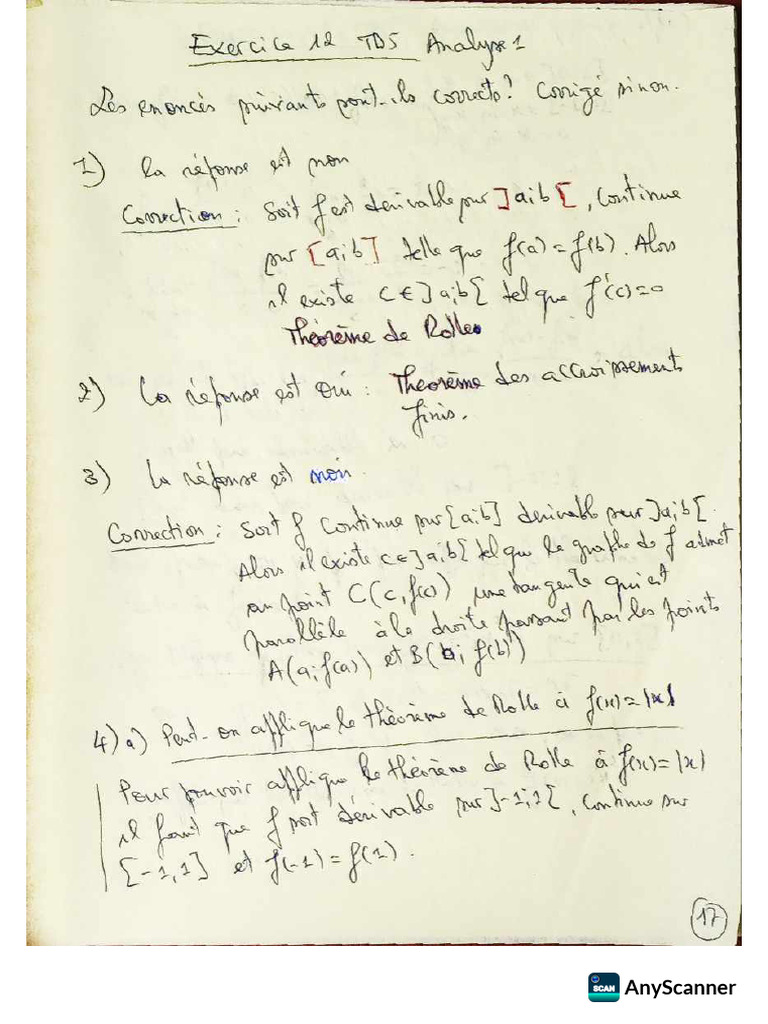 Exercice 12 TD5 Analyse 1
Les enoncés suivants sont-ils corrects? Corrigé sinon.
1) la réponse est non
Correction : Soit f est derivable sur ]a;b[, Continue
sur [a;b] telle que f(a)=f(b). Alors
il existe c∈]a;b[ tel que f'(c)=0
Théorème de Rolle
2) la réponse est oui : Theorème des accroissements
finis.
3) la réponse est non.
Correction : Soit f Continue sur [a;b] derivable sur ]a;b[.
Alors il existe c∈]a;b[ tel que le graphe de f admet
au point C(c,f(c)) une tangente qui est
parallèle à la droite passant par les points
A(a;f(a)) et B(b;f(b))
4) a) Peut-on applique le théorème de Rolle à f(x)=|x|
Pour pouvoir applique le théorème de Rolle à f(x)=|x|
il faut que f soit dérivable sur ]-1,1[, continue sur
[-1,1] et f(-1)=f(1).
17
SCAN AnyScanner